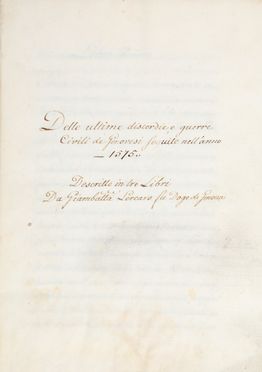 Delle ultime discordie, e guerre
Civili de Genovesi seguite nell'anno
1575.
Descritte in tre Libri
Da Giambatta Lercaro fu Doge di Genova